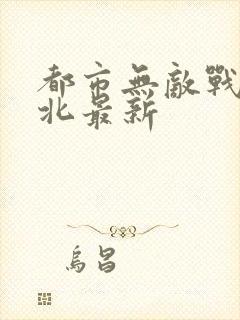 都市無敵戰
北最新
烏昌